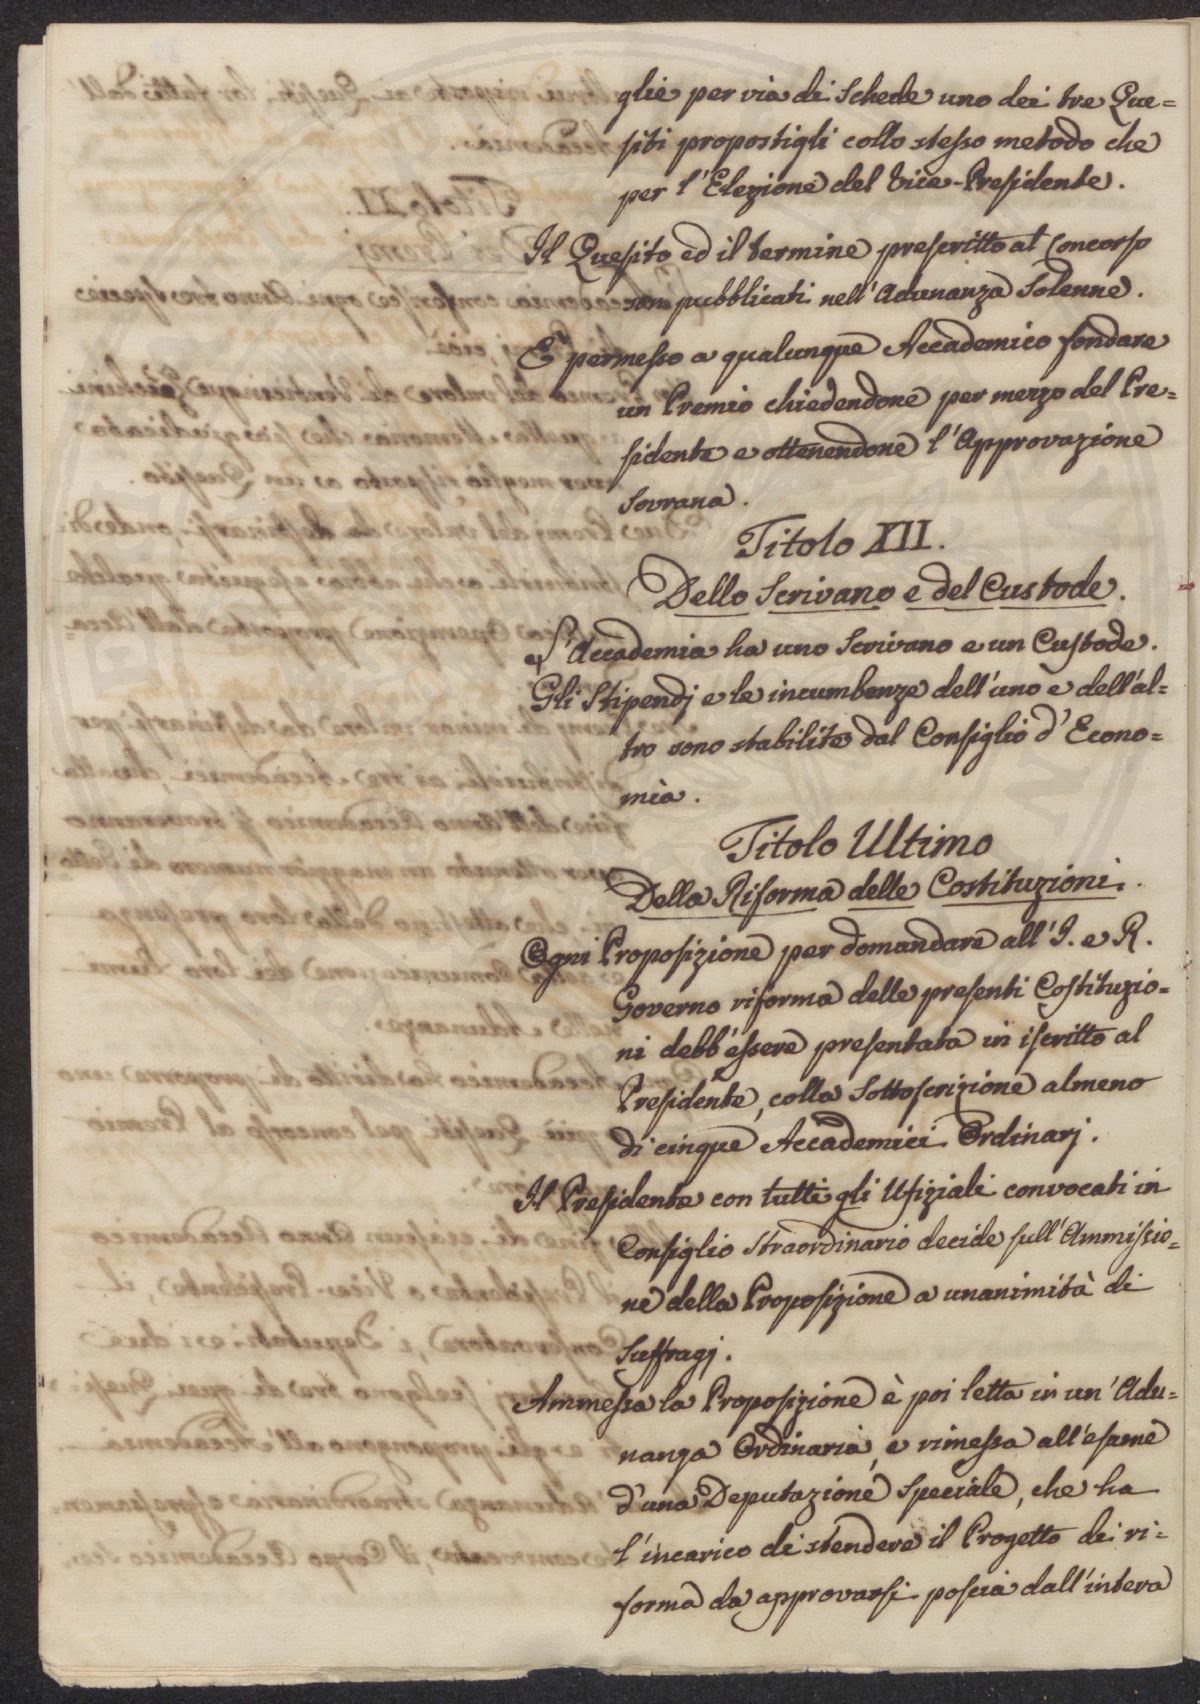 glie per via di Schede uno dei tre Que=
siti propostigli collo stesso metodo che
per l'Elezione del Vice-Presidente.
Il Quesito ed il termine prescritto al Concorso
son pubblicati nell'Adunanza Solenne.
E' permesso a qualunque Accademico fondare
un Premio chiedendone per mezzo del Pre=
sidente e ottenendone l'Approvazione
Sovrana.
Titolo XII.
Dello Scrivano e del Custode.
L'Accademia ha uno Scrivano e un Custode.
Gli Stipendj e le incumbenze dell'uno e dell'al=
tro sono stabilite dal Consiglio d'Econo=
mia.
Titolo Ultimo
Della Riforma delle Costituzioni.
Ogni Proposizione per domandare all'I. e R.
Governo riforma delle presenti Costituzio=
ni debb'essere presentata in iscritto al
Presidente, colla Sottoscrizione almeno
di cinque Accademici Ordinarj.
Il Presidente con tutti gli Ufiziali convocati in
Consiglio Straordinario decide sull'Ammissio=
ne della Proposizione a unanimità di
Suffragj.
Ammessa la Proposizione è poi letta in un'Adu=
nanza Ordinaria, e rimessa all'esame
d'una Deputazione Speciale, che ha
l'incarico di stendere il Progetto di ri=
forma da approvarsi poscia dall'intera